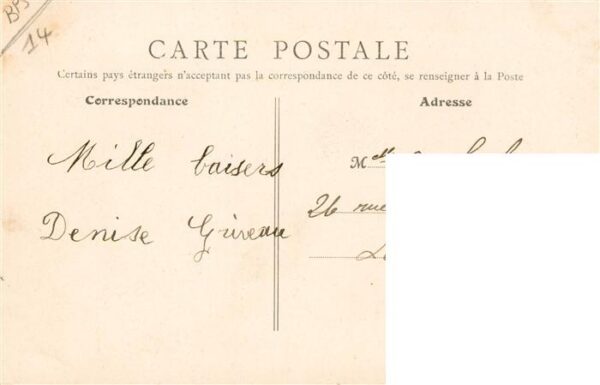 BPS
14
CARTE POSTALE
Certains pays étrangers n'acceptant pas la correspondance de ce côté, se renseigner à la Poste
Correspondance
Mille baisers
Denise Griveau
Adresse
Mlle
26 rue